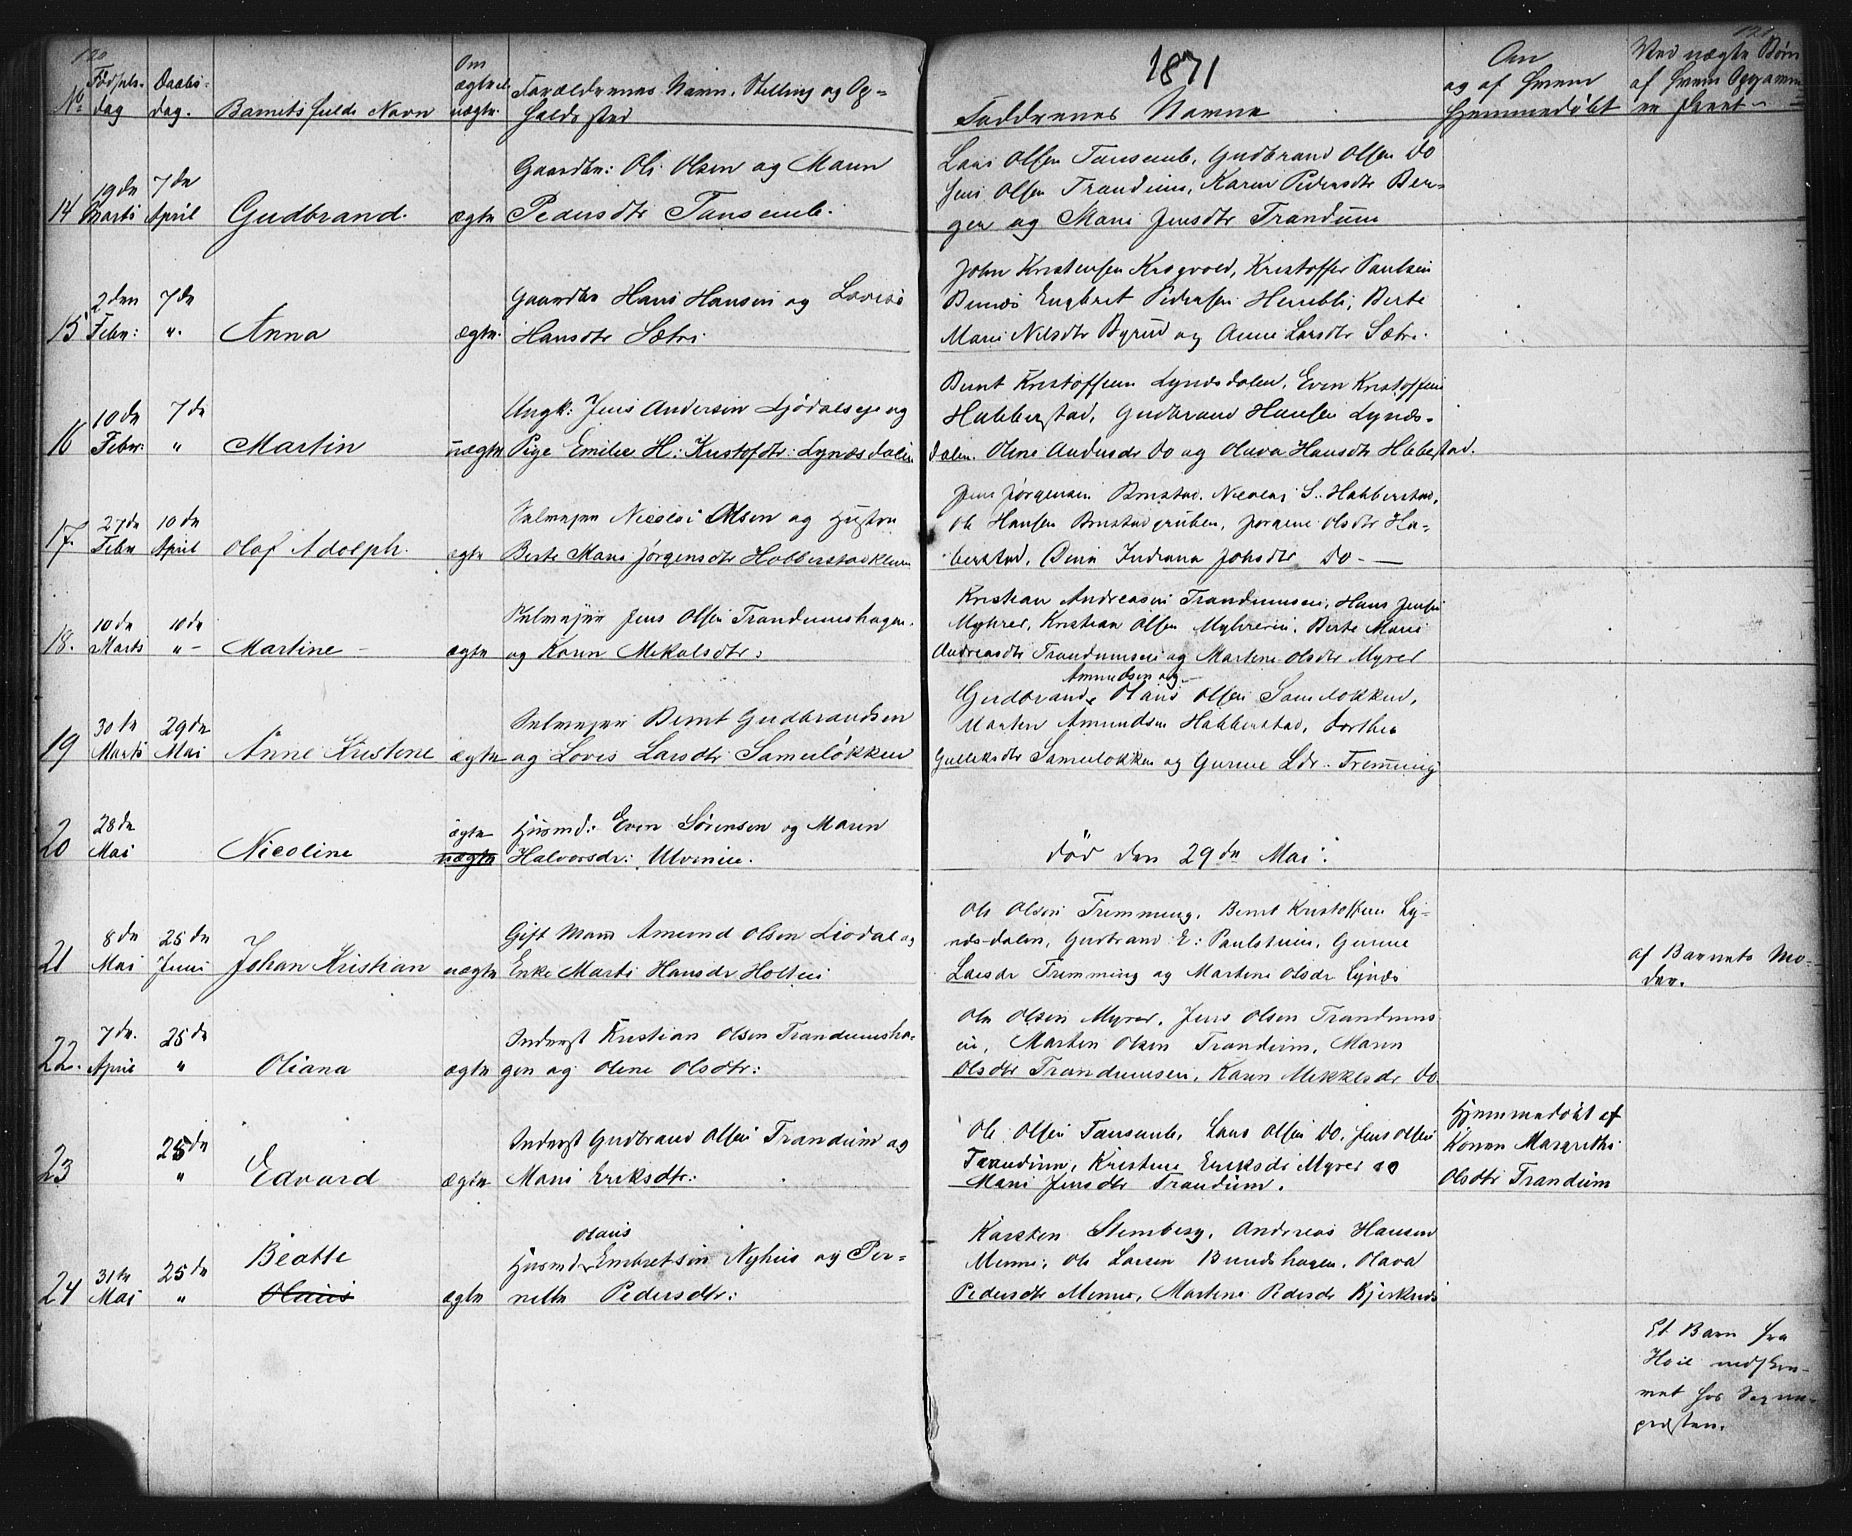 120
1871
No
Fødsels-
dag
Daabs-
dag.
Barnets fulde Navn
Om
ægte el.
uægte.
Forældrenes Navn, Stilling og Op-
holdssted
Faddernes Navne
Om
og af hvem
hjemmedøbt
Ved uægte Børn
af hvem Opgavene
er skeet
14 19de Marts 7de April Gudbrand. ægte
Gaardbr: Ole Olsen og Maren
Pedersdtr Tansemb.
Lars Olsen Tansemb, Gudbrand Olsen Do
Jens Olsen Trandum, Karen Pedersdtr Ber-
gen og Mari Jensdtr Trandum
15 2den Febr: 7de ". Anna ægte.
Gaardbr Hans Hansen og Lovise
Hansdtr Sætre
John Kristensen Krogvold, Kristoffer Paulsen
Engbret Pedersen Berte
Mari Nilsdtr Byrud og Anne Larsdtr Sætre.
16 10de Febr: 7de " Martin uægte
Ungk: Jens Andersen Ljødalseje og
Pige Emilie H: Kristofdtr: Lynæsdalen
Bernt Kristoffersen Lynæsdalen, Even Kristoffersen
Habberstad, Gudbrand Hansen Lynæs-
dalen. Oline Andersdr Do og Olava Hansdtr Habberstad.
17. 27de Febr 10de April Olaf Adolph. ægte
Selvejer Nicolai Olsen og Hustru
Berte Mari Jørgensdtr
Jens Jørgensen Nicolai S. Habberstad,
Ole Hansen Olsdtr Ha-
berstad, Johsdtr Do - —
18. 10de Marts 10de " - Martine - ægte
Selvejer Jens Olsen Trandumshagen.
og Karen Mekalsdtr:
Kristian Andreasen Trandumseie, Hans Jensen
Myhrer, Kristian Olsen Myhreeie, Berte Mari
Andreasdtr Trandumseie og Martene Olsdtr Myrer
19 30te Marts 29de Mai Anne Kristene ægte
Selvejer Bernt Gudbrandsen
og Lovis Larsdtr Sameløkken
Amundsen og
Gudbrand Olaus Olsen Sameløkken,
Morten Amundsen Habberstad, Dorthea
Gulleksdtr Sameløkken og Gunne Ldr. Fremming
20 28de Mai Nicoline ægte
uægte
Husmd: Even Sørensen og Maren
Halvorsdr: Ulvineie.
død den 29de Mai.
21 8de Mai 25de Juni Johan Kristian uægte
Gift Mand Amund Olsen Liodal og
Enke Marte Hansdr Holteie
Ole Olsen Fremming, Bernt Kristoffersen Ly-
næsdalen, Gudbrand E: Paulseiie, Gunne
Larsdr Fremming og Martene Olsdr Lynæs
af Barnets Mo-
der.
22. 7de. April 25de " Oliana ægte
Inderst Kristian Olsen Trandumsha-
gen og Olene Olsdtr:
Ole Olsen Myrer, Jens Olsen Trandums-
eie, Morten Olsen Trandum, Maren
Olsdtr Trandumseie, Karen Mekkelsdr Do
23 25de " Edvard ægte
Inderst Gudbrand Olsen Trandum og
Mari Eriksdtr:
Ole Olsen Tansemb, Lars Olsen Do, Jens Olsen
Trandum, Kristene Eriksdr Myrer og
Mari Jensdtr Trandum.
Hjemmedøbt af
Konen Margrethe
Olsdtr Trandum
24 31te Mai 25de " Beatte
Olaus ægte
Olaus
Husmd Embretsen Nyhus og Per-
nette Pedersdtr:
Karsten Stensberg, Andreas Hansen
Menne, Ole Larsen Bundshagen, Olava
Pedersdtr Menne, Martene Pedersdr Bjerknes
Et Barn fra
indskre-
vet hos Sogne-
præsten.